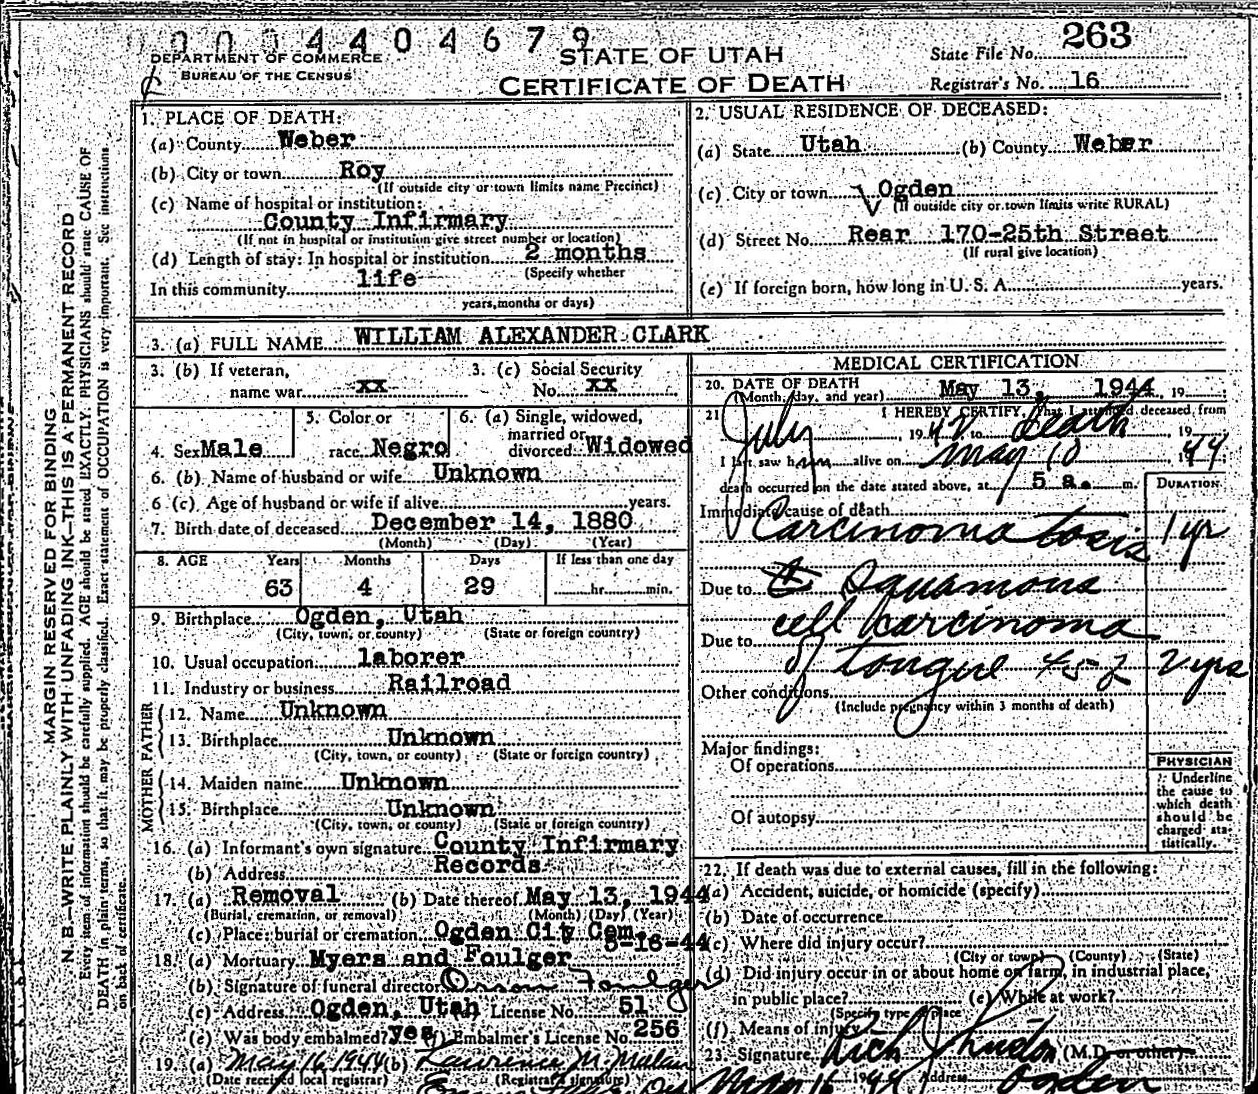 0004404679
DEPARTMENT OF COMMERCE
BUREAU OF THE CENSUS
STATE OF UTAH
CERTIFICATE OF DEATH
State File No. 263
Registrar's No. 16
MARGIN RESERVED FOR BINDING
N. B.—WRITE PLAINLY WITH UNFADING INK—THIS IS A PERMANENT RECORD
Every item of information should be carefully supplied. AGE should be stated EXACTLY. PHYSICIANS should state CAUSE OF
DEATH in plain terms, so that it may be properly classified. Exact statement of OCCUPATION is very important. See instructions
on back of certificate.
1. PLACE OF DEATH:
(a) County Weber
(b) City or town Roy
(If outside city or town limits name Precinct)
(c) Name of hospital or institution:
County Infirmary
(If not in hospital or institution give street number or location)
(d) Length of stay: In hospital or institution 2 months
(Specify whether
In this community life
years, months or days)
2. USUAL RESIDENCE OF DECEASED:
(a) State Utah (b) County Weber
(c) City or town Ogden
(If outside city or town limits write RURAL)
(d) Street No. Rear 170-25th Street
(If rural give location)
(e) If foreign born, how long in U. S. A. years.
3. (a) FULL NAME WILLIAM ALEXANDER CLARK
3. (b) If veteran, name war xx
3. (c) Social Security No. xx
4. Sex Male
5. Color or race Negro
6. (a) Single, widowed, married or divorced Widowed
6. (b) Name of husband or wife Unknown
6 (c) Age of husband or wife if alive years.
7. Birth date of deceased December 14, 1880
(Month) (Day) (Year)
8. AGE Years Months Days If less than one day
63 4 29 hr. min.
9. Birthplace Ogden, Utah
(City, town, or county) (State or foreign country)
10. Usual occupation laborer
11. Industry or business Railroad
FATHER
12. Name Unknown
13. Birthplace Unknown
(City, town, or county) (State or foreign country)
MOTHER
14. Maiden name Unknown
15. Birthplace Unknown
(City, town, or county) (State or foreign country)
16. (a) Informant's own signature County Infirmary
(b) Address Records
17. (a) Removal (b) Date thereof May 13, 1944
(Burial, cremation, or removal) (Month) (Day) (Year)
(c) Place: burial or cremation Ogden City Cem.
5-16-44
18. (a) Mortuary Myers and Foulger
(b) Signature of funeral director Orson Foulger
(c) Address Ogden, Utah License No. 51
(e) Was body embalmed? yes Embalmer's License No. 256
19. (a) May 16, 1944 (b) Lawrence M. Malan
(Date received local registrar) (Registrar's signature)
MEDICAL CERTIFICATION
20. DATE OF DEATH
(Month, day, and year) May 13, 1944, 19
21 I HEREBY CERTIFY, That I attended deceased from
July, 1942 to death, 19
I last saw him alive on May 10 1944
death occurred on the date stated above, at 5 a. m.
DURATION
Immediate cause of death
Carcinomatosis 1 yr
Due to Squamous
cell carcinoma
Due to
of tongue 45-2 2 yrs
Other conditions
(Include pregnancy within 3 months of death)
Major findings:
Of operations
Of autopsy
PHYSICIAN
Underline
the cause to
which death
should be
charged sta-
tistically.
22. If death was due to external causes, fill in the following:
(a) Accident, suicide, or homicide (specify)
(b) Date of occurrence
(c) Where did injury occur?
(City or town) (County) (State)
(d) Did injury occur in or about home on farm, in industrial place,
in public place? (e) While at work?
(Specify type of place
(f) Means of injury
23. Signature Rich Johnston (M.D. or other)
May 16 1944 Address Ogden